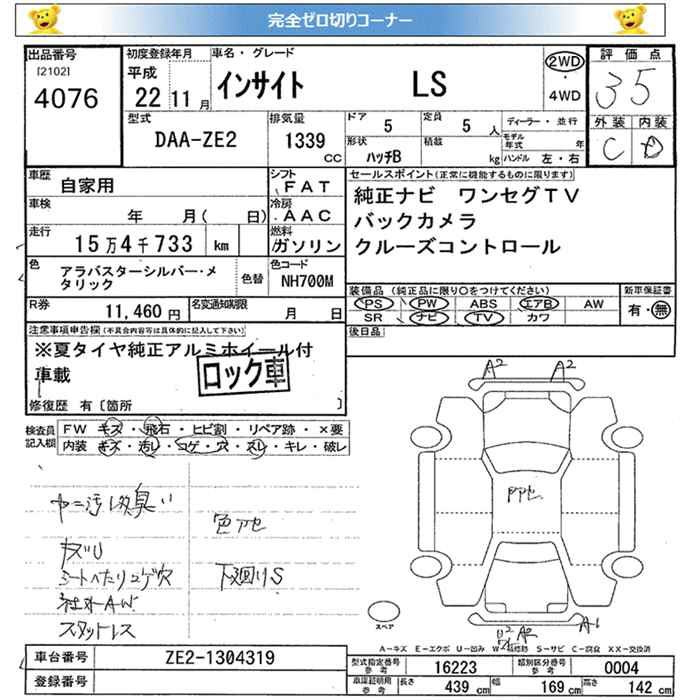 完全ゼロ切りコーナー
出品番号
[2102]
4076
初度登録年月
平成
22 11 月
車名・グレード
インサイト LS
2WD
・
4WD
評価点
35
外装 内装
C D
型式
DAA-ZE2
排気量
1339
CC
ドア
5
定員
5 人
形状
ハッチB
積載
kg
ディーラー・並行
モデル年式 年
ハンドル 左・右
車歴
自家用
シフト
FAT
車検
年 月( 日)
冷房
AAC
走行
15万4千733 km
燃料
ガソリン
色
アラバスターシルバー・メタリック
色替
色コード
NH700M
R券
11,460 円
名変通知期限
月 日
セールスポイント(正常に機能するものに限ります)
純正ナビ ワンセグTV
バックカメラ
クルーズコントロール
装備品 (純正品に限り○をつけてください)
PS PW ABS エアB AW
SR ナビ TV カワ
新車保証書
有・無
後日品
注意事項申告欄(不具合内容等は具体的に記入して下さい)
※夏タイヤ純正アルミホイール付
車載
ロック車
修復歴 有〔箇所 〕
検査員記入欄
FW キズ・飛石・ヒビ割・リペア跡・×要
内装 キズ・汚レ・コゲ・穴・スレ・キレ・破レ
ヤニ汚レ臭い
キズU
シートへたりコゲ穴
社外AW
スタッドレス
色アセ
下廻りS
A2 A2
スペア
U2 A2
A1
A-キズ E-エクボ U-凹み S-サビ C-腐食 XX-交換済
車台番号
ZE2-1304319
登録番号
型式指定番号
参考
16223
類別区分番号
参考
0004
車庫証明用
参考
長さ 439 cm
幅 169 cm
高さ 142 cm